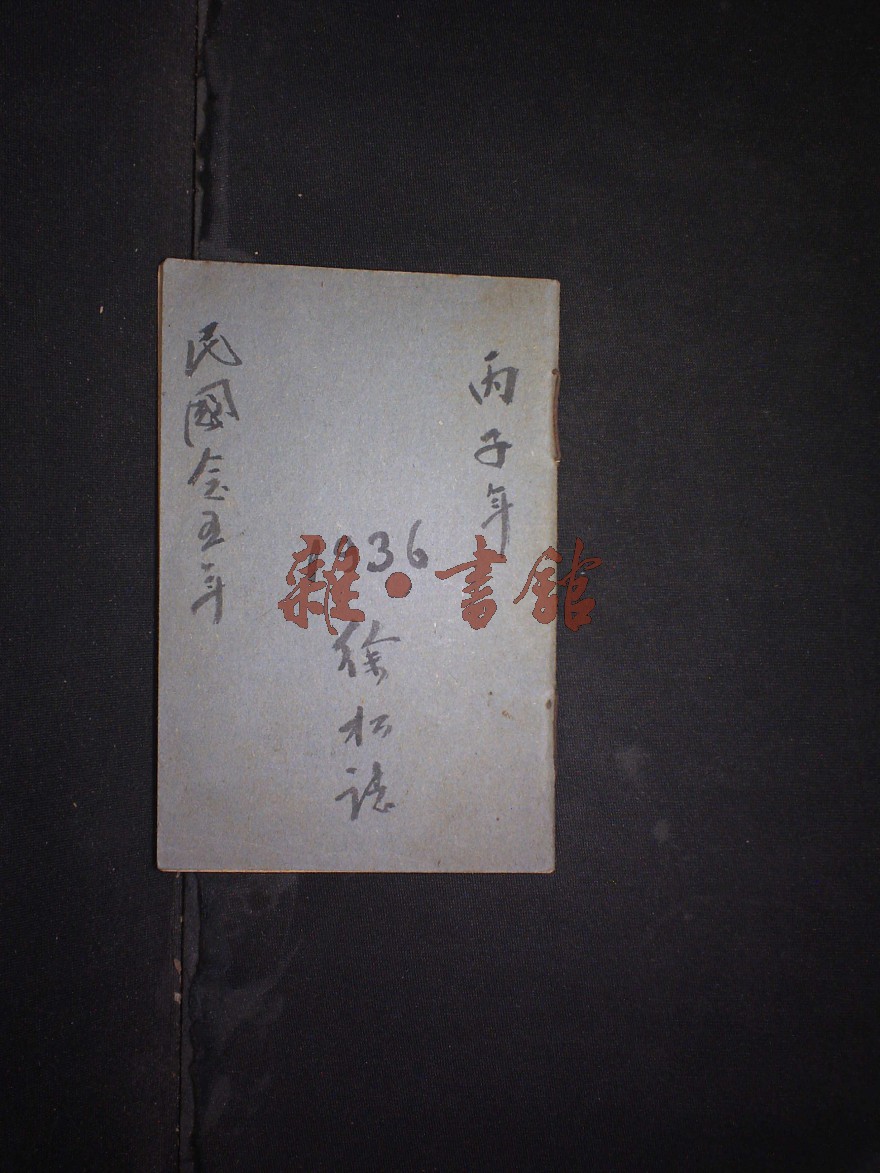 丙子年
1936
徐松誌
民國念五年
雜·書館